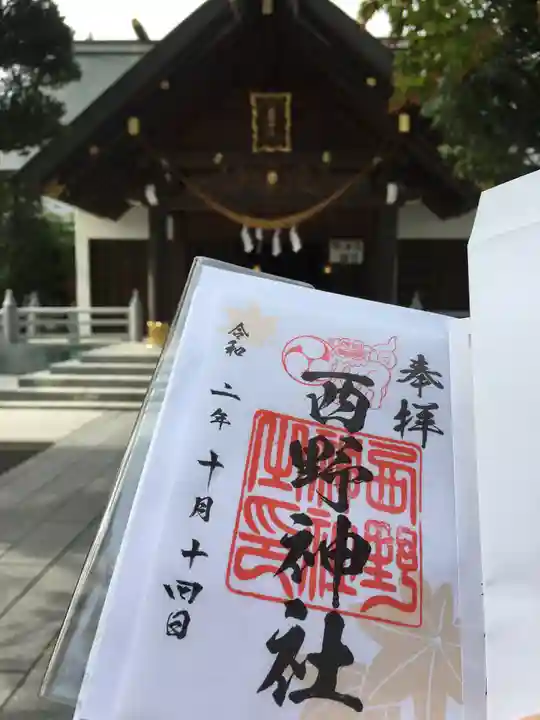 奉拝
西野神社
西野
神社
之印
令和二年十月十四日